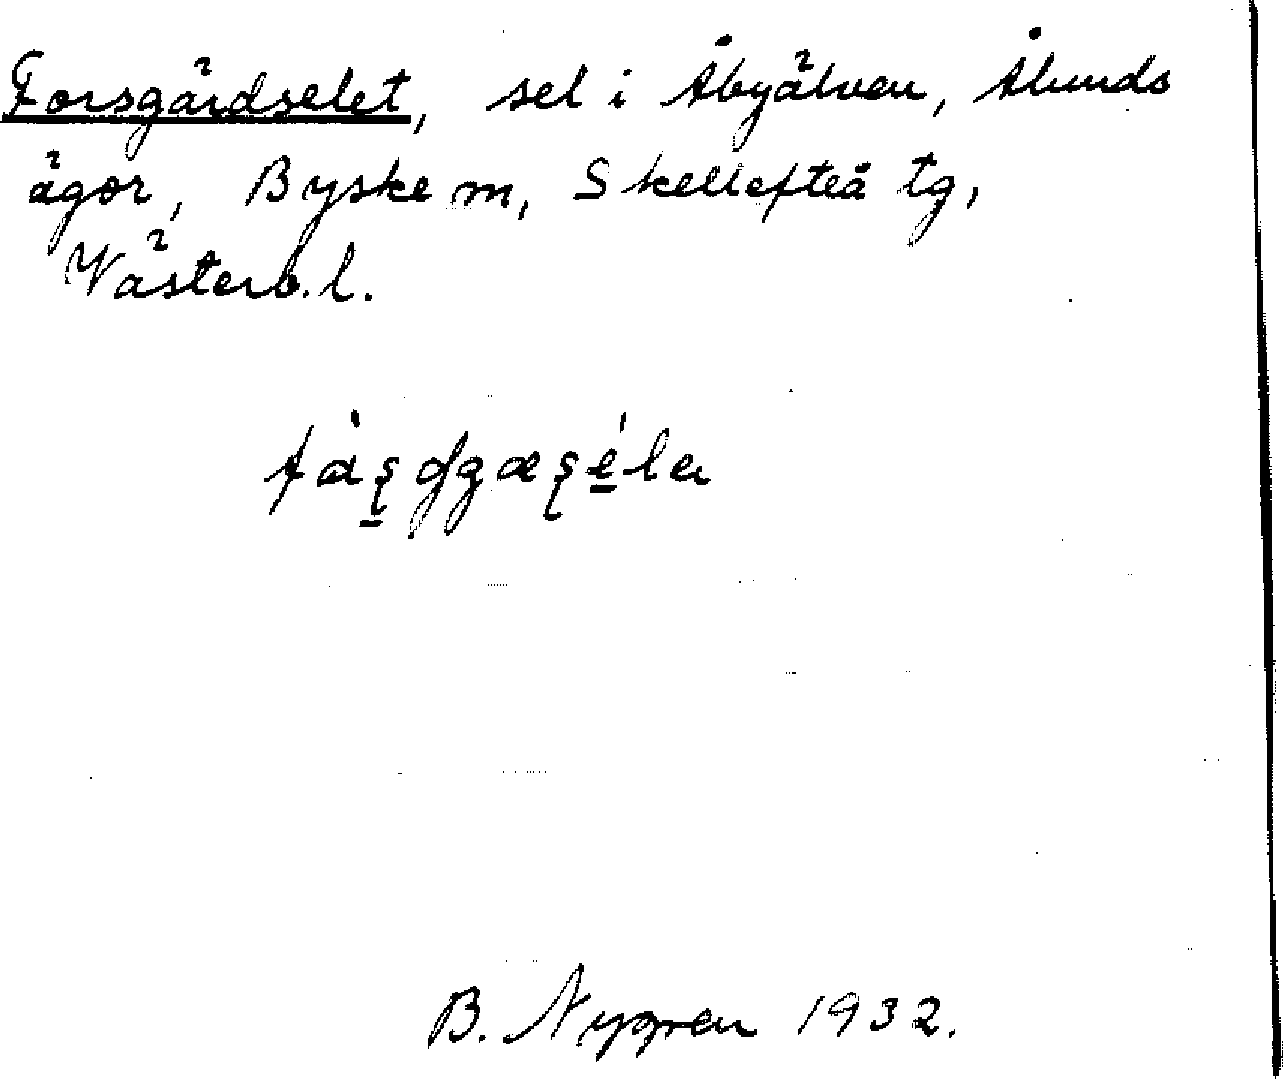 Forsgärdselet, sel i Åbyälven, Ålunds
ägor, Byske m, Skellefteå tg,
Västerb. l.
B. Nygren 1932.